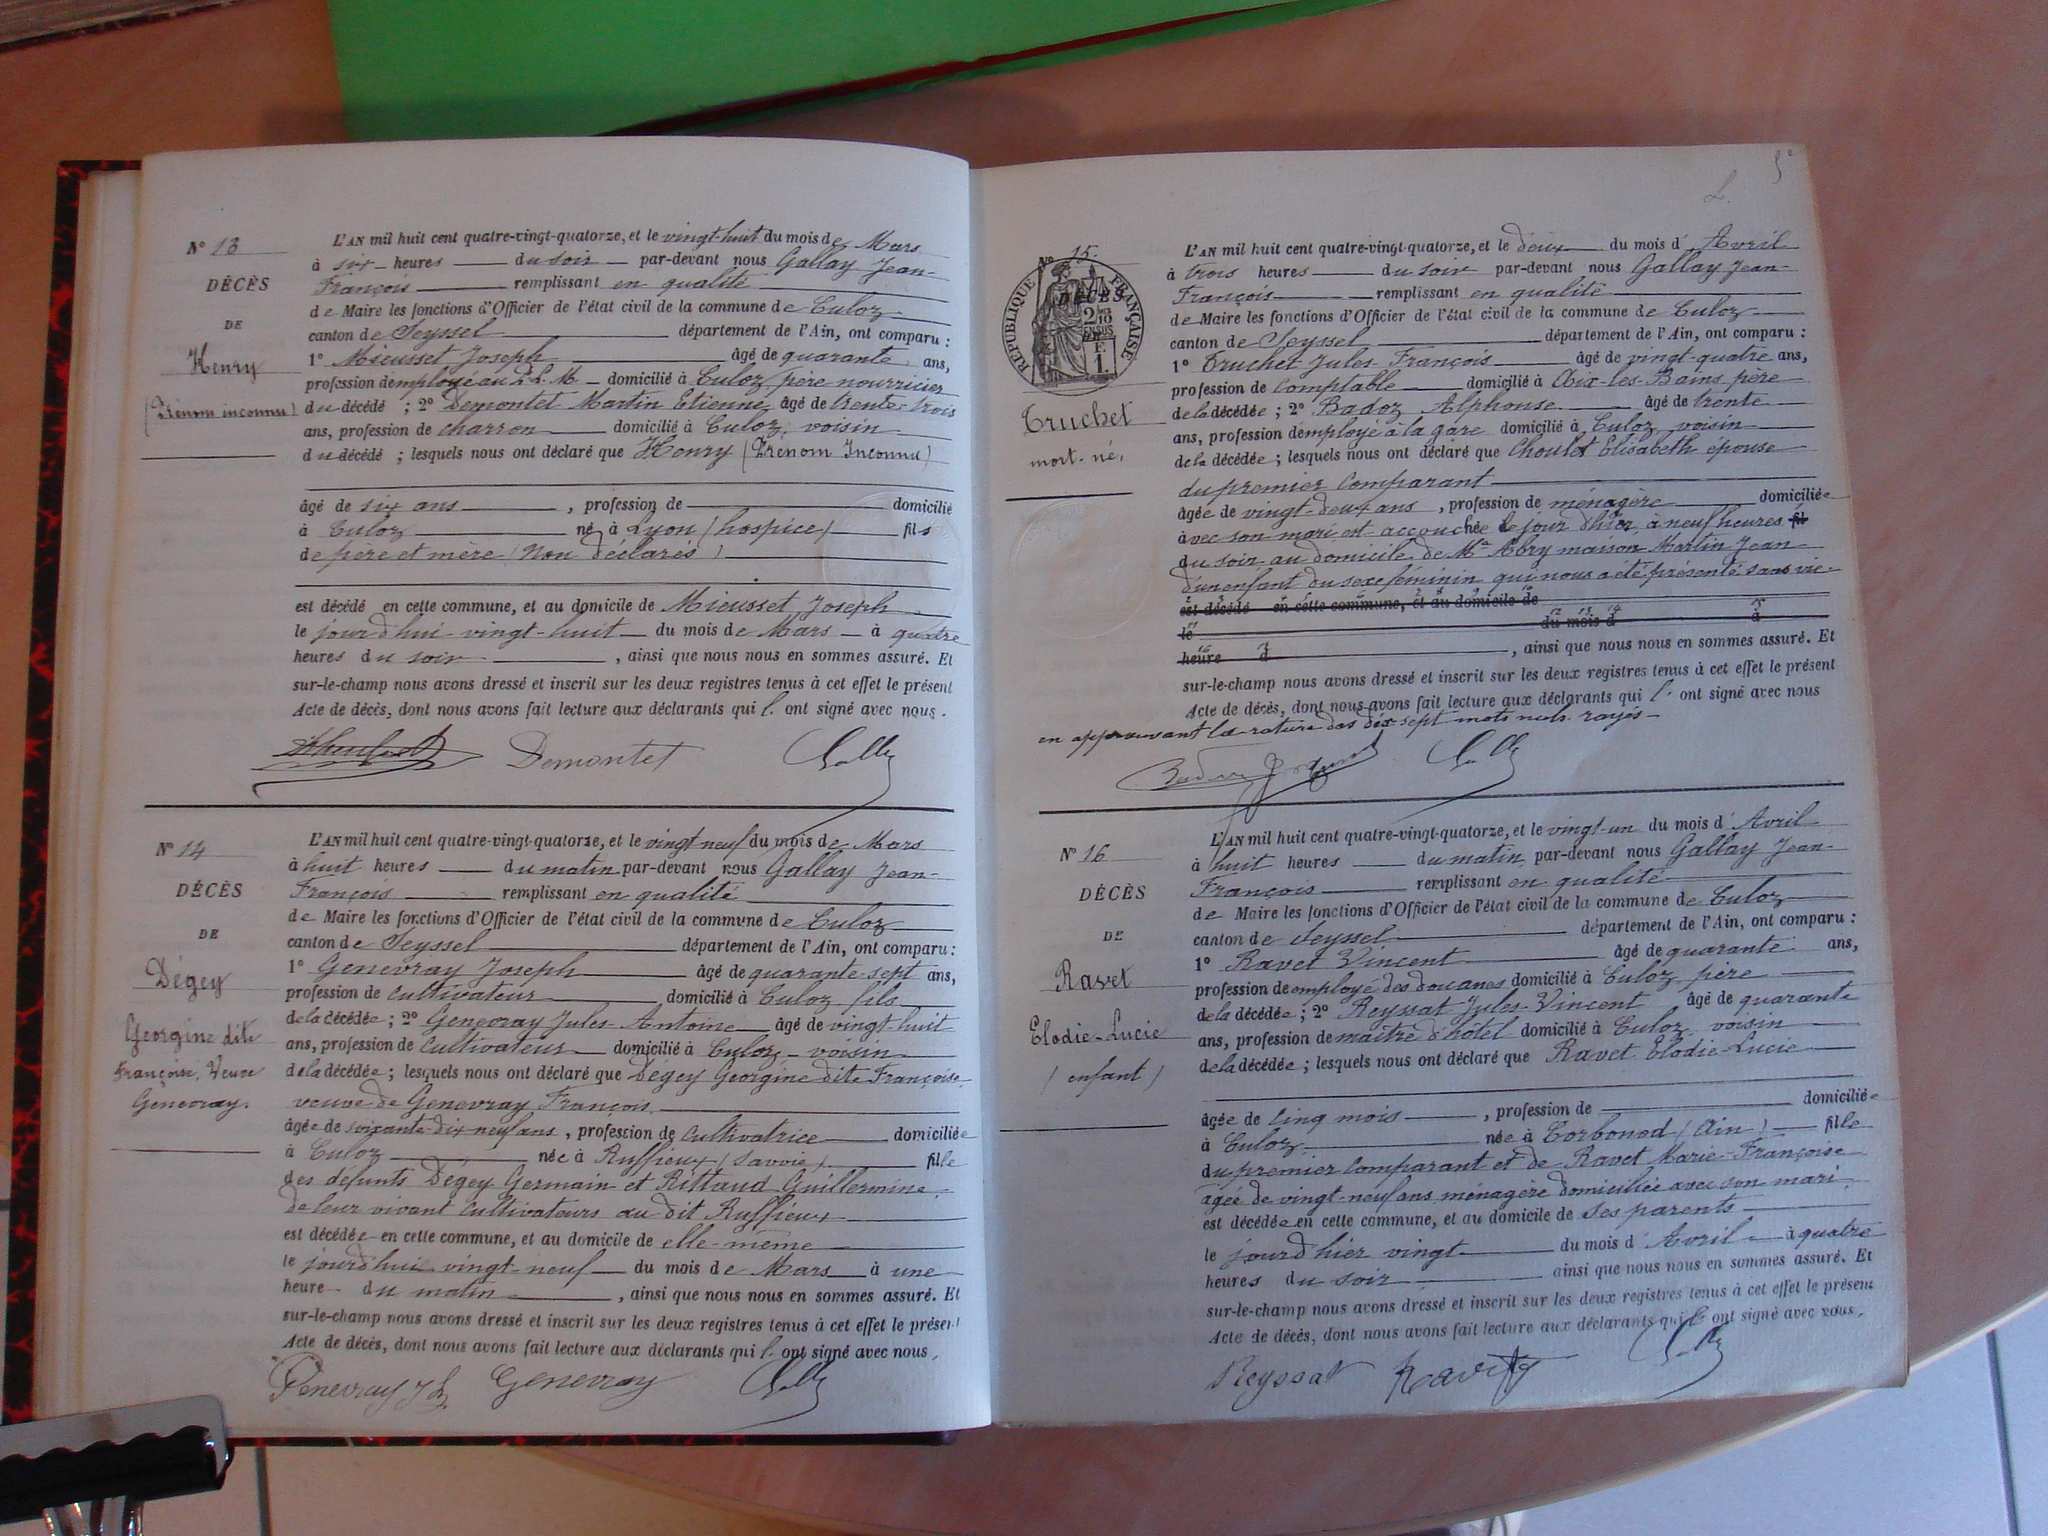 N° 13
DÉCÈS
DE
Henry
(Prénom inconnu)
L'AN mil huit cent quatre-vingt-quatorze, et le vingt-huit du mois de Mars
à six heures du soir par-devant nous Gallay Jean-
François remplissant en qualité
de Maire les fonctions d'Officier de l'état civil de la commune de Culoz
canton de Seyssel département de l'Ain, ont comparu :
1° Mieusset Joseph âgé de quarante ans,
profession d'employé au P.L.M. domicilié à Culoz, père nourricier
du décédé ; 2° Demontet Martin Etienne, âgé de trente-trois
ans, profession de charron domicilié à Culoz, voisin
du décédé ; lesquels nous ont déclaré que Henry (Prénom Inconnu)
âgé de six ans , profession de domicilié
à Culoz né à Lyon (hospice) fils
de père et mère (Non déclarés)
est décédé en cette commune, et au domicile de Mieusset Joseph
le jourd'hui vingt-huit du mois de Mars à quatre
heures du soir , ainsi que nous nous en sommes assuré. Et
sur-le-champ nous avons dressé et inscrit sur les deux registres tenus à cet effet le présent
Acte de décès, dont nous avons fait lecture aux déclarants qui l' ont signé avec nous.
Demontet Gallay
N° 14
DÉCÈS
DE
Dégey
Georgine dite
Françoise, Veuve
Genevray.
L'AN mil huit cent quatre-vingt-quatorze, et le vingt neuf du mois de Mars
à huit heures du matin par-devant nous Gallay Jean-
François remplissant en qualité
de Maire les fonctions d'Officier de l'état civil de la commune de Culoz
canton de Seyssel département de l'Ain, ont comparu :
1° Genevray Joseph âgé de quarante-sept ans,
profession de cultivateur domicilié à Culoz fils
de la décédée ; 2° Genevray Jules-Antoine âgé de vingt-huit
ans, profession de cultivateur domicilié à Culoz - voisin
de la décédée ; lesquels nous ont déclaré que Dégey Georgine dite Françoise
veuve de Genevray François
âgée de soixante-dix-neuf ans , profession de cultivatrice domiciliée
à Culoz née à Ruffieux (Savoie) fille
des défunts Dégey Germain et Rittaud Guillermine
de leur vivant cultivateurs au dit Ruffieux
est décédée en cette commune, et au domicile de elle-même
le jourd'hui vingt-neuf du mois de Mars à une
heure du matin , ainsi que nous nous en sommes assuré. Et
sur-le-champ nous avons dressé et inscrit sur les deux registres tenus à cet effet le présent
Acte de décès, dont nous avons fait lecture aux déclarants qui l' ont signé avec nous.
Genevray Genevray Gallay
5e
N° 15.
RÉPUBLIQUE FRANÇAISE
DÉCÈS
Truchet
mort-né,
L'AN mil huit cent quatre-vingt-quatorze, et le deux du mois d' Avril
à trois heures du soir par-devant nous Gallay Jean-
François remplissant en qualité
de Maire les fonctions d'Officier de l'état civil de la commune de Culoz
canton de Seyssel département de l'Ain, ont comparu :
1° Truchet Jules-François âgé de vingt quatre ans,
profession de comptable domicilié à Aix-les-Bains père
de la décédée ; 2° Badoz Alphonse âgé de trente
ans, profession d'employé à la gare domicilié à Culoz voisin
de la décédée ; lesquels nous ont déclaré que Choulet Elisabeth épouse
du premier comparant
âgée de vingt-deux ans , profession de ménagère domiciliée
avec son mari est accouchée le jour d'hier, à neuf heures fil
du soir au domicile de Me Abry maison Martin Jean-
d'un enfant du sexe féminin qui nous a été présenté sans vie
est décédé en cette commune, et au domicile de
le du mois d à
heure d , ainsi que nous nous en sommes assuré. Et
sur-le-champ nous avons dressé et inscrit sur les deux registres tenus à cet effet le présent
Acte de décès, dont nous avons fait lecture aux déclarants qui l' ont signé avec nous
en approuvant la rature des dix-sept mots nuls rayés
Gallay
N° 16
DÉCÈS
DE
Ravet
Elodie-Lucie
(enfant)
L'AN mil huit cent quatre-vingt-quatorze, et le vingt-un du mois d' Avril
à huit heures du matin par-devant nous Gallay Jean-
François remplissant en qualité
de Maire les fonctions d'Officier de l'état civil de la commune de Culoz
canton de Seyssel département de l'Ain, ont comparu :
1° Ravet Vincent âgé de quarante ans,
profession de employé des douanes domicilié à Culoz père
de la décédée ; 2° Reyssat Jules-Vincent âgé de quarante
ans, profession de maître d'hôtel domicilié à Culoz, voisin
de la décédée ; lesquels nous ont déclaré que Ravet Elodie-Lucie
âgée de cinq mois , profession de domiciliée
à Culoz née à Corbonod (Ain) fille
du premier comparant et de Ravet Marie-Françoise
âgée de vingt-neuf ans ménagère domiciliée avec son mari
est décédée en cette commune, et au domicile de ses parents
le jour d'hier vingt du mois d' Avril à quatre
heures du soir ainsi que nous nous en sommes assuré. Et
sur-le-champ nous avons dressé et inscrit sur les deux registres tenus à cet effet le présent
Acte de décès, dont nous avons fait lecture aux déclarants qui l' ont signé avec nous.
Reyssat Ravet Gallay